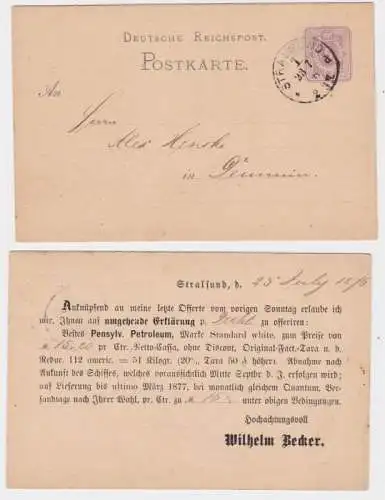 DEUTSCHE REICHSPOST.
POSTKARTE.
An
Herrn
Alex Henske
in Demmin.
Stralsund, d. 25 July 1876
Anknüpfend an meine letzte Offerte vom vorigen Sonntag erlaube ich
mir, Ihnen auf umgehende Erklärung p. zu offeriren:
Bestes Pensylv. Petroleum, Marke Standard white, zum Preise von
pr Ctr. Netto-Cassa, ohne Discont, Original-Fact.-Tara u. d.
Reduc. 112 americ. = 51 Kilogr. (20%, Tara 50 ₰ höher). Abnahme nach
Ankunft des Schiffes, welches voraussichtlich Mitte Septbr d. J. erfolgen wird;
auf Lieferung bis ultimo März 1877, bei monatlich gleichem Quantum, Ver-
sandtage nach Ihrer Wahl, pr. Ctr. zu unter obigen Bedingungen.
Hochachtungsvoll
Wilhelm Becker.